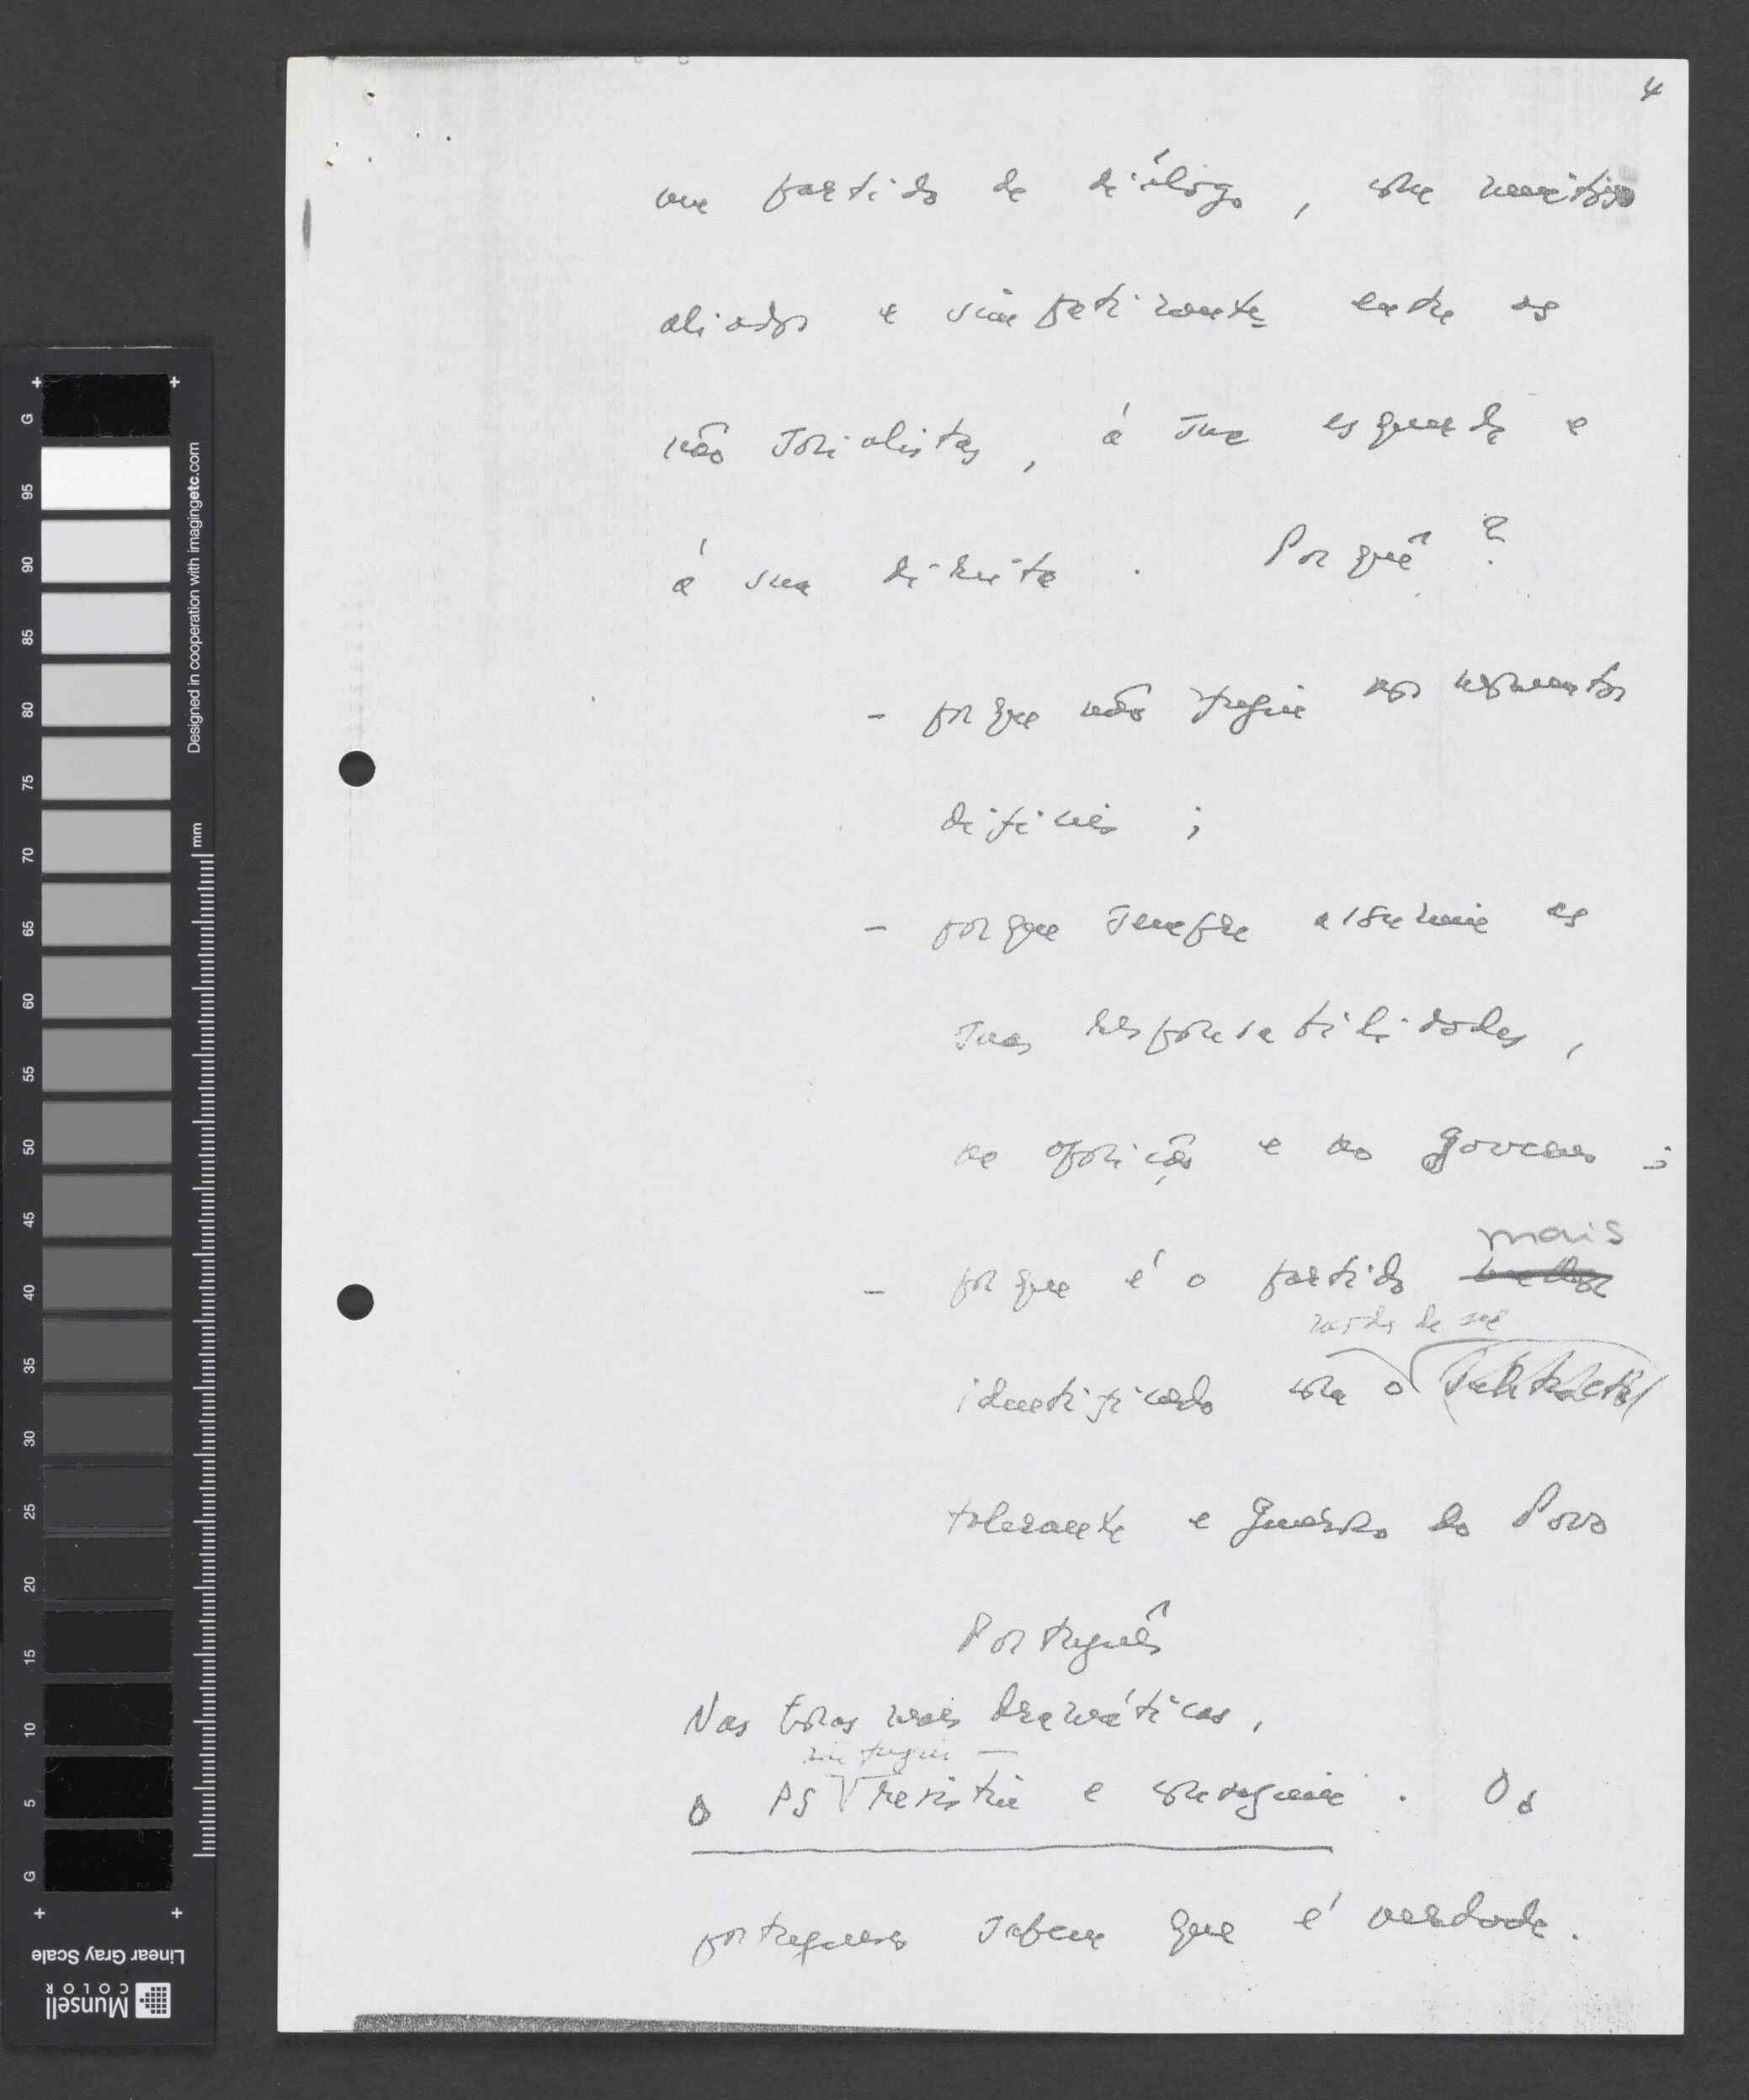 4
um partido de diálogo, com muitos
aliados e simpatizantes entre os
não socialistas, à sua esquerda e
à sua direita. Porquê?
- porque não fugiu nos momentos
difíceis;
- porque sempre assumiu as
suas responsabilidades,
na oposição e no governo;
mais
- porque é o partido melhor
modo de ser
identificado com o
tolerante e generoso do Povo
Português
Nas horas mais dramáticas,
não fugiu —
O PS resistiu e conseguiu. Os
portugueses sabem que é verdade.
G
95
90
85
80
75
70
65
60
55
50
45
40
35
30
25
20
15
10
5
0
G
Designed in cooperation with imagingetc.com
mm
Linear Gray Scale
Munsell
COLOR